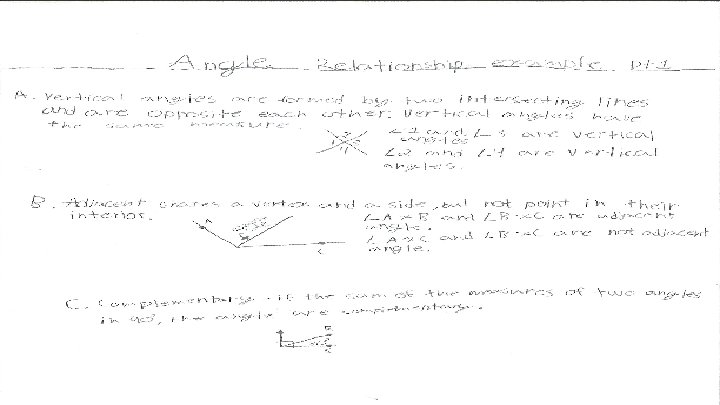 Angle Relationship example pt1
A. Vertical angles are formed by two intersecting lines
and are opposite each other. Vertical angles have
the same measure.
∠1 and ∠3 are vertical
angles
∠2 and ∠4 are vertical
angles.
B. Adjacent shares a vertex and a side, but not point in their
interior.
∠AXB and ∠BXC are adjacent
angle.
∠AXC and ∠BXC are not adjacent
angle.
A
C
C. Complementary - if the sum of the measures of two angles
is 90°, the angle are complementary.